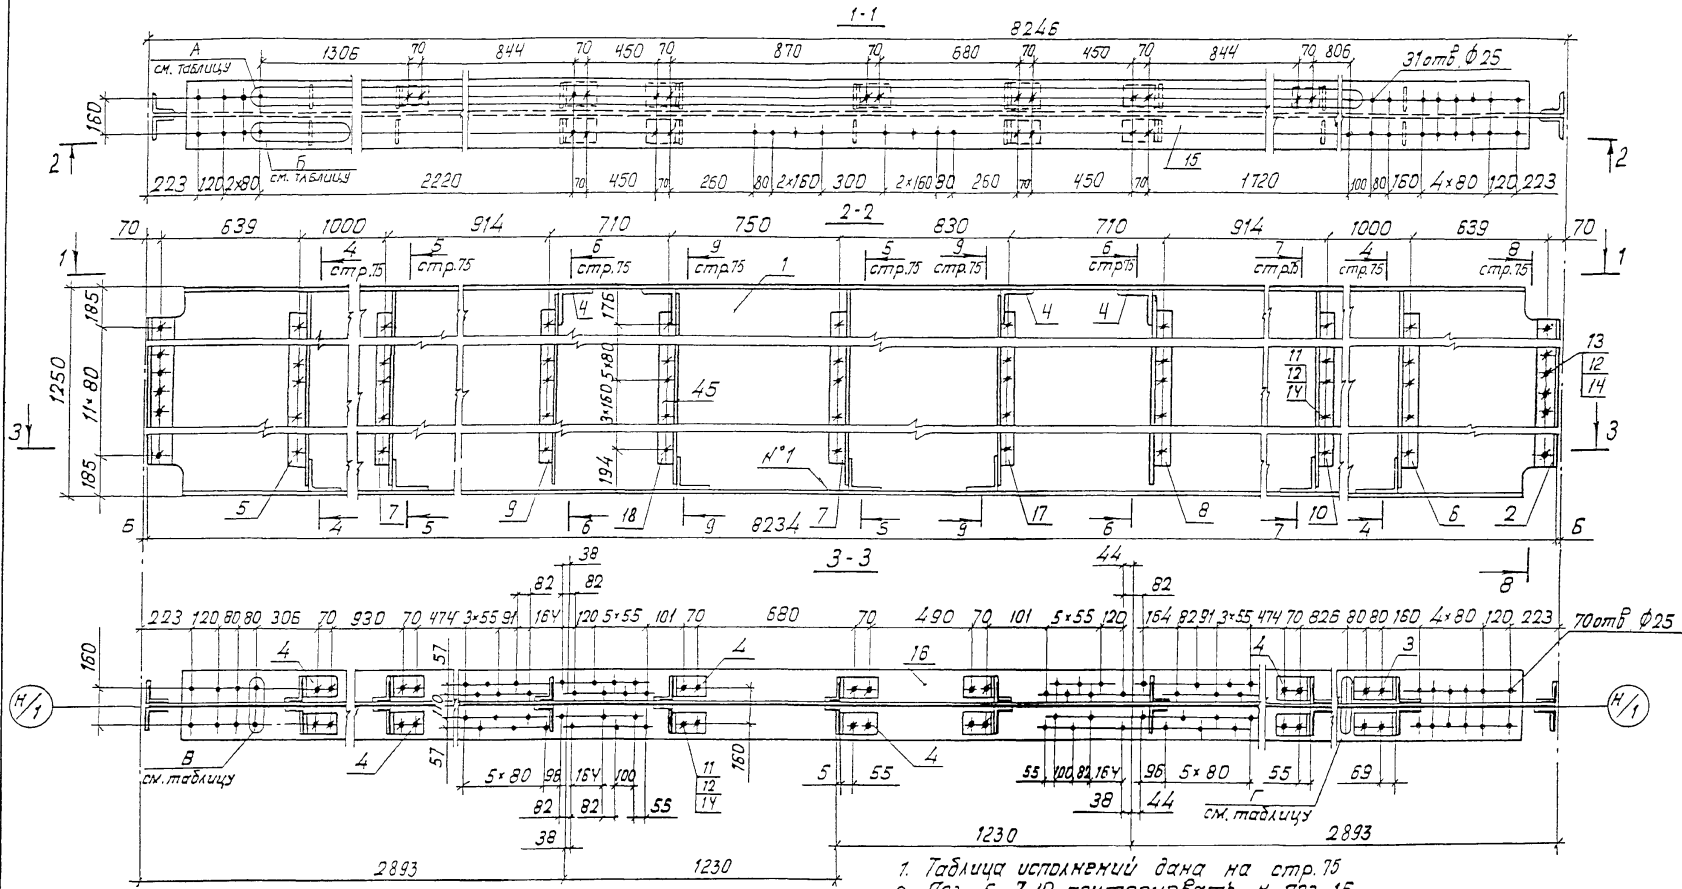 1-1
8246
А
см. таблицу
1306 70 844 70 450 70 870 70 680 70 450 70 844 70 806
31 отв. Ф25
160
2
2
Б
см. таблицу
15
223 120 2×80 2220 70 450 70 260 80 2×160 300 2×160 80 260 70 450 70 1720 100 80 160 4×80 120 223
2-2
70 639 1000 914 710 750 830 710 914 1000 639 70
1 4 5 6 9 5 9 6 7 4 8 1
стр.75 стр.75 стр.75 стр.75 стр.75 стр.75 стр.75 стр.75 стр.75 стр.75
1
4 4 4
185
176
1250
11×80
5×80
3×160
45
11
12
14
13
12
14
3
3
185
194
№1
5 7 9 18 7 17 8 10 6 2
4 5 6 9 5 9 6 7 4
Б 8234 Б
8
3-3
38 44
82 82 82
223 120 80 80 306 70 930 70 474 3×55 91 164 120 5×55 101 70 680 70 490 70 101 5×55 120 164 82 91 3×55 474 70 826 80 80 160 4×80 120 223
70 отв. Ф25
160
4
57
110
57
4
16
4
3
Н/1
Н/1
В
см. таблицу
4
160
4
11
12
14
5×80 98 164 100
5 55
55 100 82 164 96 5×80 55 69
82 82 55
38
38 44
Г
см. таблицу
1230 2893
2893 1230
1. Таблица исполнений дана на стр. 75